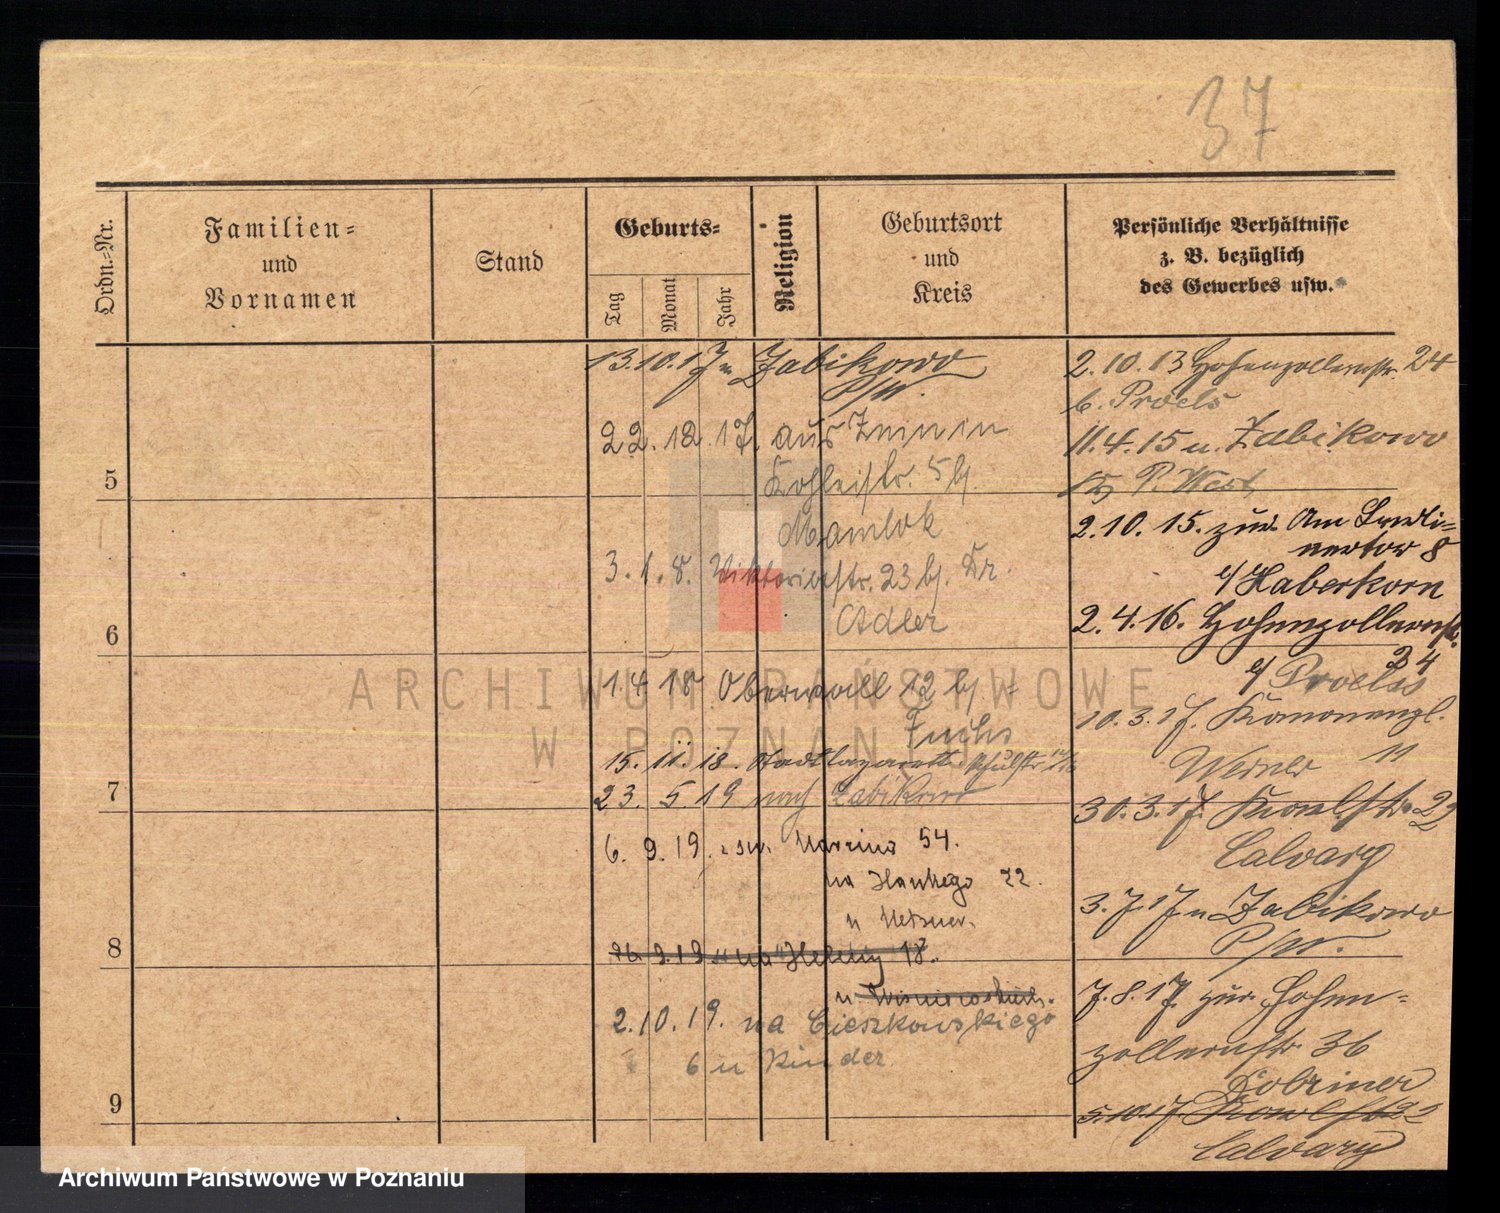 37
Ordn.-Nr.
Familien-
und
Vornamen
Stand
Geburts-
Tag
Monat
Jahr
Religion
Geburtsort
und
Kreis
Persönliche Verhältnisse
z. B. bezüglich
des Gewerbes usw.
13.10.17 n Zabikowo
22.12.17. aus Znin in
5
5 bj.
Mamlok
3.1.8. Viktoriastr. 23 bj. Dr.
Adler
6
1.4 18 Oberwall 12 bj
Fuchs
15. 11. 18. Stadtlazarett
7
23. 5 19 nach Zabikowo
6. 9. 19. 54.
na 22.
u
8
9.19 na Heleny 18.
u
2.10.19. na Cieszkowskiego
6 u Kinder
9
2.10.13 Hohenzollernstr. 24
b. Proels
11.4.15 n. Zabikowo
P. West
2.10.15. zur. Am
8
Haberkorn
2.4.16. Hohenzollernstr.
24
10.3.17.
Werner 11
30.3.17. 29
Calvary
3.7.17 n Zabikowo
7.8.17. zur. Hohen-
zollernstr. 36
Dobriner
5.10.17.
Calvary
ARCHIWUM PAŃSTWOWE
W POZNANIU
Archiwum Państwowe w Poznaniu